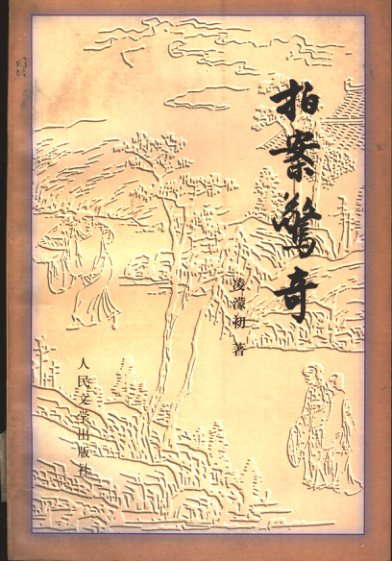 拍案驚奇
凌濛初 著
人民文学出版社